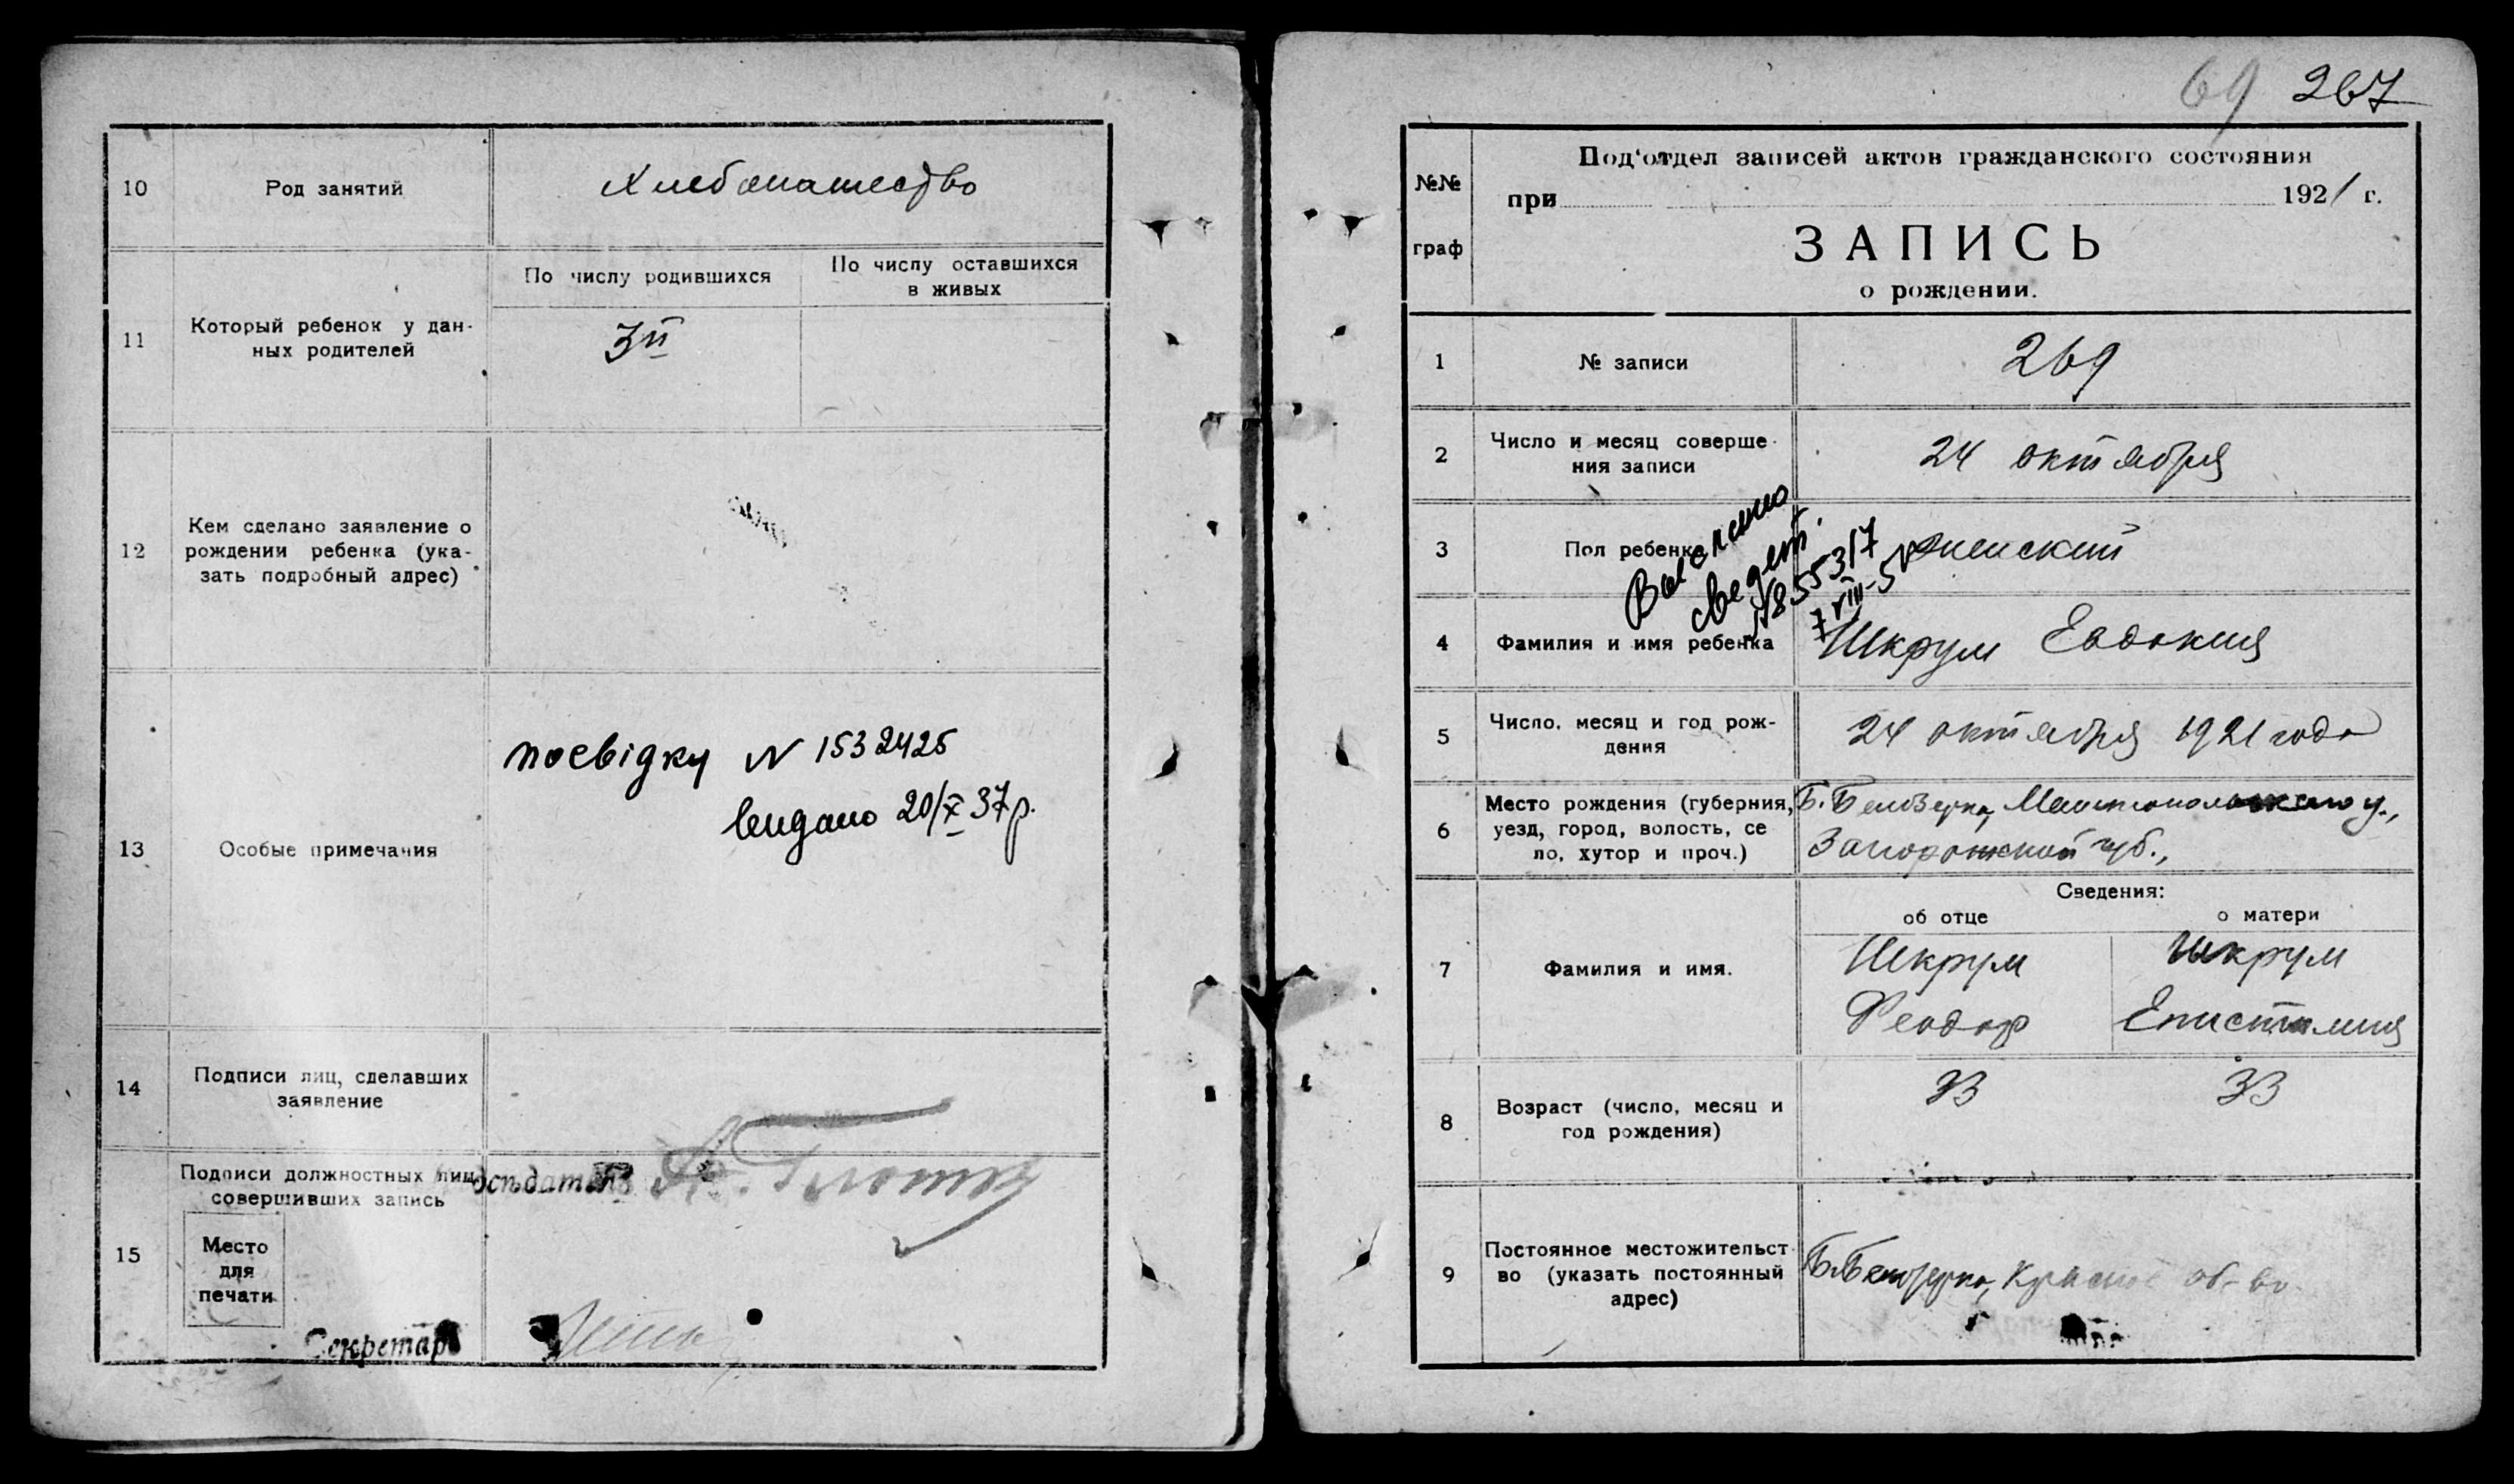 10
Род занятий
Хлебопашество
11
Который ребенок у дан-
ных родителей
По числу родившихся
По числу оставшихся
в живых
3й
12
Кем сделано заявление о
рождении ребенка (ука-
зать подробный адрес)
13
Особые примечания
посвідку N 1532425
видано 20/X 37 р.
14
Подписи лиц, сделавших
заявление
15
Подписи должностных лиц,
совершивших запись
Место
для
печати
Секретарь
69 267
№№
граф
Под'отдел записей актов гражданского состояния
при 1921 г.
ЗАПИСЬ
о рождении.
1
№ записи
269
2
Число и месяц соверше-
ния записи
24 октября
3
Пол ребенка
женский
Выслано
свидет.
N 855317
7 VIII-5
4
Фамилия и имя ребенка
Шкрум Евдокия
5
Число, месяц и год рож-
дения
24 октября 1921 года
6
Место рождения (губерния,
уезд, город, волость, се
ло, хутор и проч.)
Б. Белозерка, Мелитопольского у.,
Запорожской губ.,
Сведения:
об отце
о матери
7
Фамилия и имя.
Шкрум
Феодор
Шкрум
Епистимия
8
Возраст (число, месяц и
год рождения)
33
33
9
Постоянное местожительст
во (указать постоянный
адрес)
Б. Белозерка, об-во